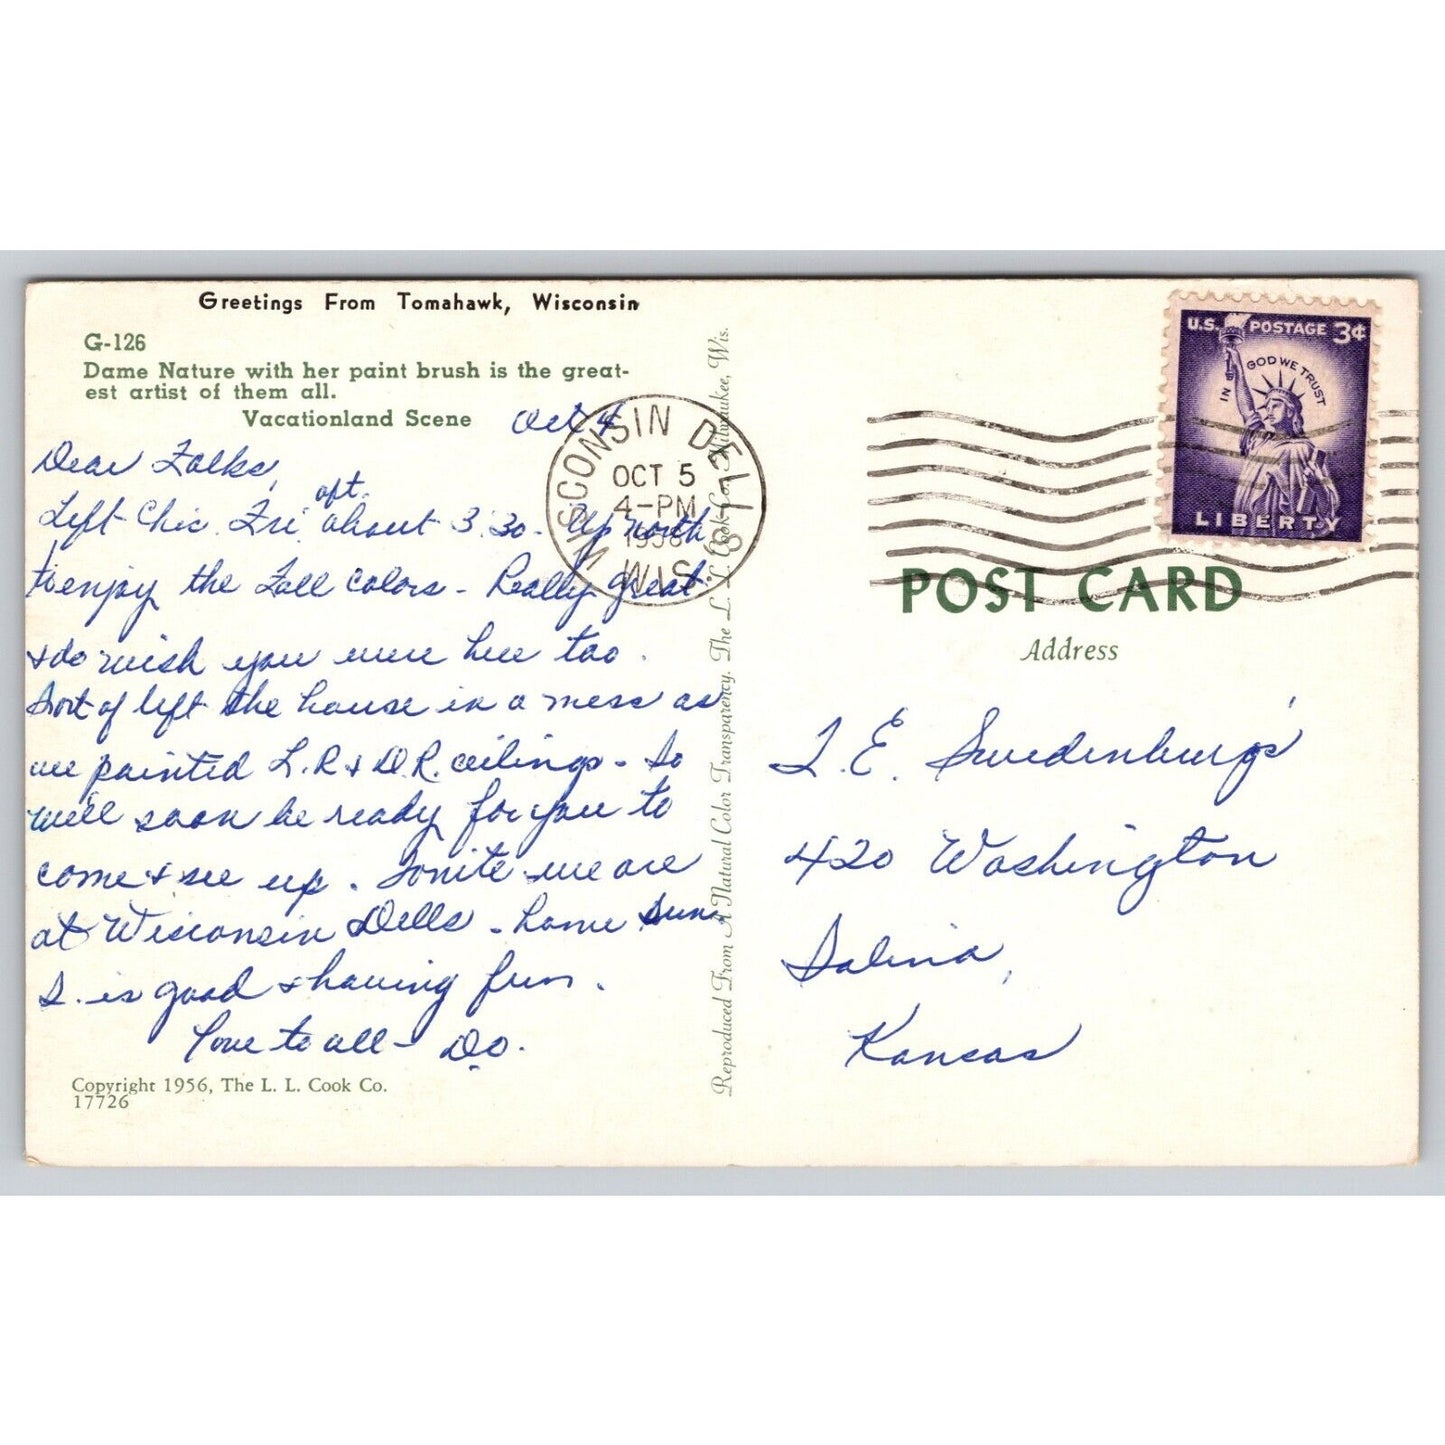 Greetings From Tomahawk, Wisconsin
G-126
Dame Nature with her paint brush is the great-
est artist of them all.
Vacationland Scene
Oct 4
Dear Folks,
Left Chic. Fri aft. about 3:30 - Up north
to enjoy the Fall colors - Really great
& do wish you were here too.
Sort of left the house in a mess as
we painted L.R & D.R. ceilings - So
we'll soon be ready for you to
come & see us. Tonite we are
at Wisconsin Dells - home Sun.
S. is good & having fun.
Love to all - Do.
Copyright 1956, The L. L. Cook Co.
17726
Reproduced From A Natural Color Transparency. The L. L. Cook Co., Milwaukee, Wis.
WISCONSIN DELLS
OCT 5
4-PM
1958
WIS.
U.S. POSTAGE 3¢
IN GOD WE TRUST
LIBERTY
POST CARD
Address
L. E. Swedenburgs'
420 Washington
Salina,
Kansas